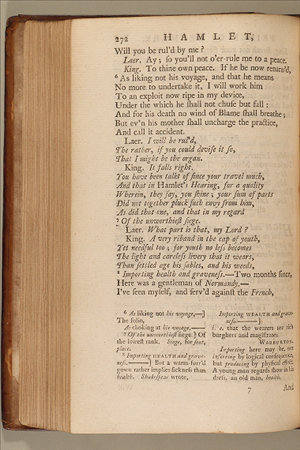 272 HAMLET,
Will you be rul'd by me?
Laer. Ay; so you'll not o'er-rule me to a peace.
King. To thine own peace. If he be now return'd,
⁶ As liking not his voyage, and that he means
No more to undertake it, I will work him
To an exploit now ripe in my device,
Under the which he shall not chuse but fall:
And for his death no wind of Blame shall breathe;
But ev'n his mother shall uncharge the practice,
And call it accident.
Laer. I will be rul'd,
The rather, if you could devise it so,
That I might be the organ.
King. It falls right.
You have been talkt of since your travel much,
And that in Hamlet's Hearing, for a quality
Wherein, they say, you shine; your sum of parts
Did not together pluck such envy from him,
As did that one, and that in my regard
⁷ Of the unworthiest siege.
Laer. What part is that, my Lord?
King. A very ribband in the cap of youth,
Yet needful too; for youth no less becomes
The light and careless livery that it wears,
Than settled age his sables, and his weeds,
⁸ Importing health and graveness.—Two months since,
Here was a gentleman of Normandy.—
I've seen myself, and serv'd against the French,
⁶ As liking not his voyage,—]
The folio,
As checking at his voyage.
⁷ Of the unworthiest siege.] Of
the lowest rank. Siege, for seat,
place.
⁸ Importing HEALTH and grave-
ness.] But a warm furr'd
gown rather implies sickness than
health. Shakespear wrote,
Importing WEALTH and grave-
ness.
i. e. that the wearers are rich
burghers and magistrates.
WARBURTON.
Importing here may be, not
inferring by logical consequence,
but producing by physical effect.
A young man regards show in his
dress, an old man, health.
7 And